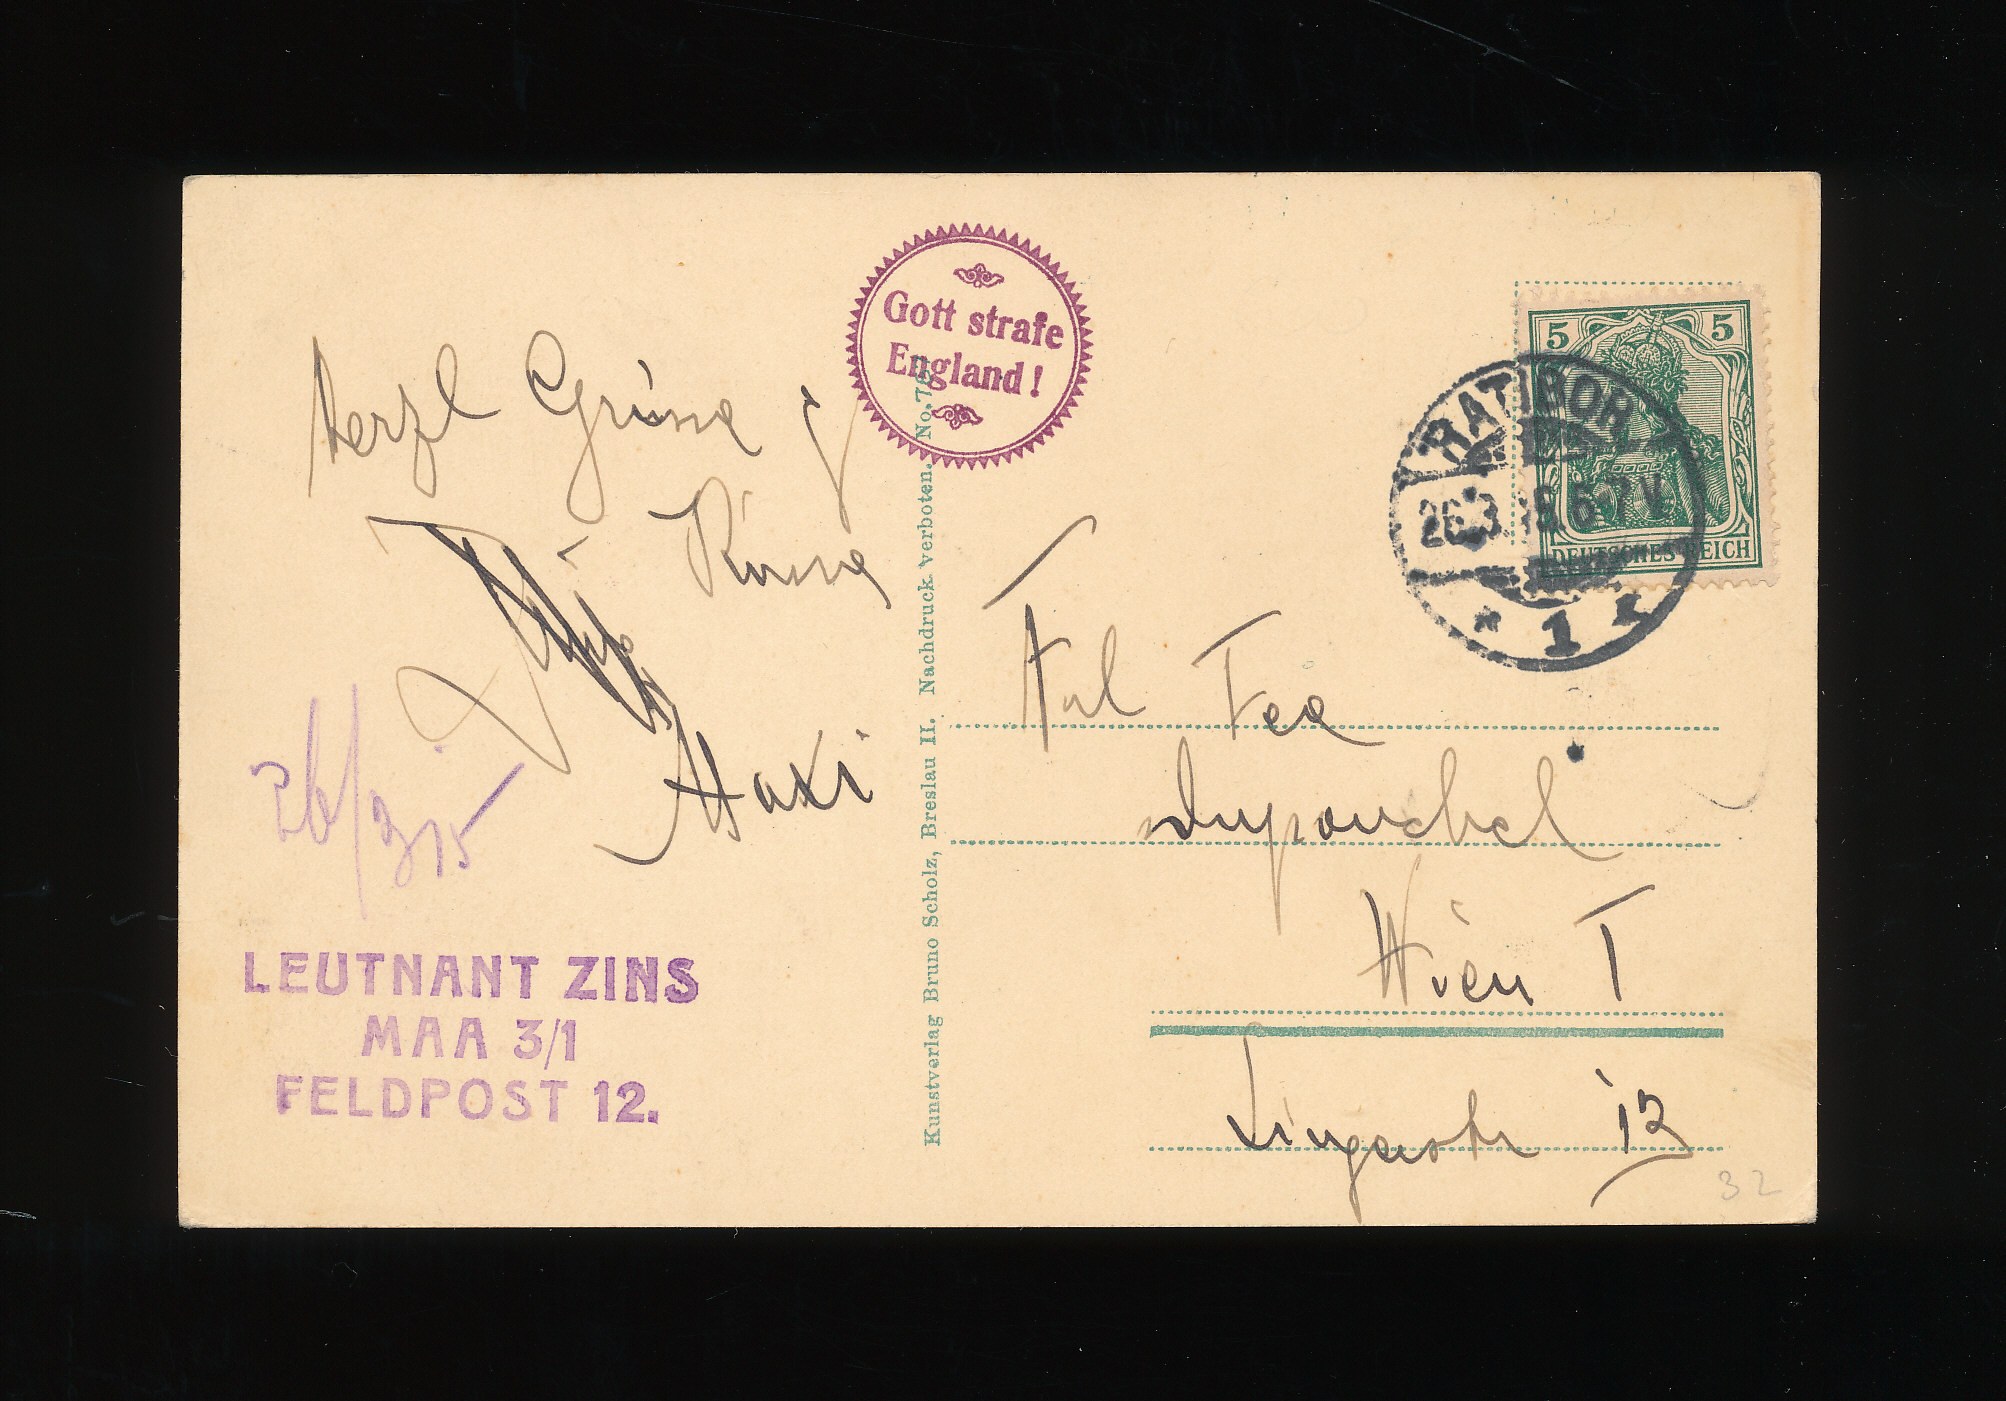 Gott strafe
England!
5 5
DEUTSCHES REICH
RATIBOR
26.3. 15. 6-7 V.
* 1 *
herzl Grüße
Maxi
26/3 15
LEUTNANT ZINS
MAA 3/1
FELDPOST 12.
Kunstverlag Bruno Scholz, Breslau II. Nachdruck verboten. No.
Frl Fea
Duponchel
Wien I
Singerstr 12
32